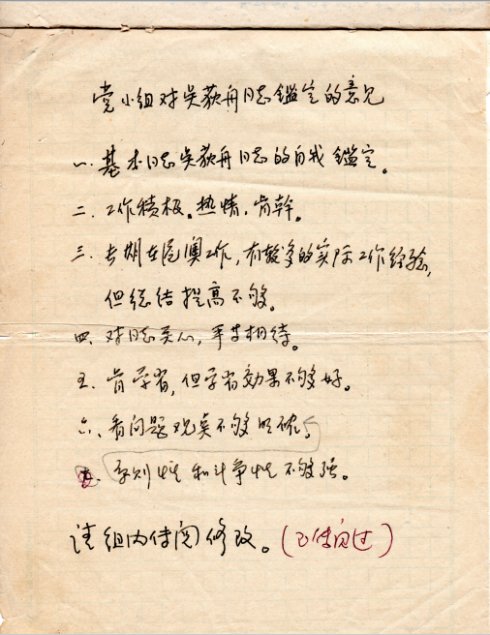 党小组对吴荻舟同志鑑定的意见
一、基本同意吴荻舟同志的自我鑑定。
二、工作积极。热情,肯幹。
三、长期在港澳工作,有较多的实际工作经验,
但总结提高不够。
四、对同志关心,平等相待。
五、肯学习,但学习效果不够好。
六、看问题观点不够明确,
原则性和斗争性不够强。
请组内传阅修改。(已传阅过)